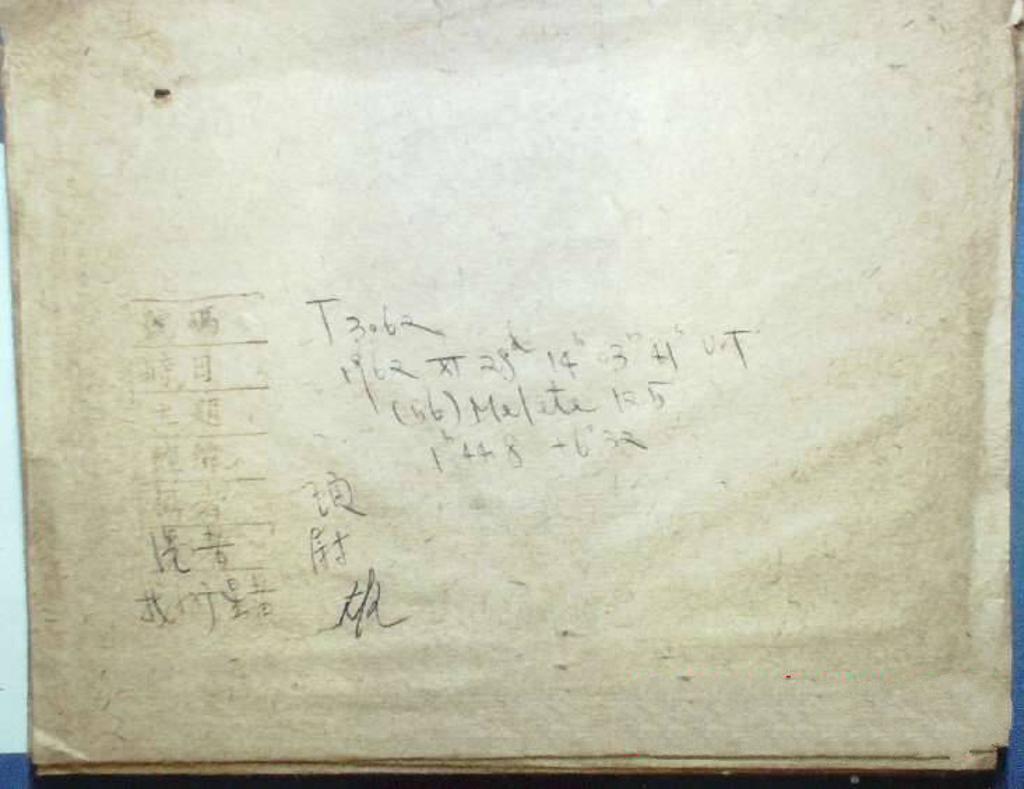 號碼 T3062
時日 1962 XI 28ᵈ 14ʰ 03ᵐ 41ˢ U.T
主題 (56) Melete 12.5
1ʰ 44.8 +6° 32
攝者
洗者
找行星者